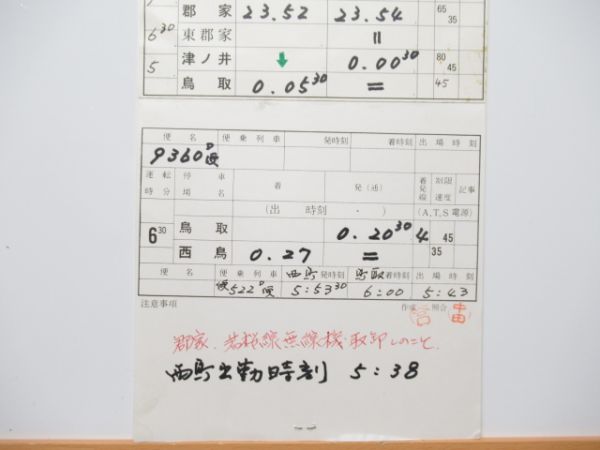 郡家 23.52 23.54 65 35
6 30 東郡家 ||
5 津ノ井 ↓ 0.00 30 80 45
鳥取 0.05 30 = 45
便名 便乗列車 発時刻 着時刻 出場時刻
9360D
運転時分 停車場名 着 発(通) 着発線 制限速度 記事
(出 時刻 ・ ) (A,T,S電源)
6 30 鳥取 0.20 30 4 45
西鳥 0.27 = 35
便名 便乗列車 西鳥発時刻 鳥取着時刻 出場時刻
522D 5:53 30 6:00 5:43
注意事項 作成 照合
郡家、若桜線無線機取卸しのこと
西鳥出勤時刻 5:38